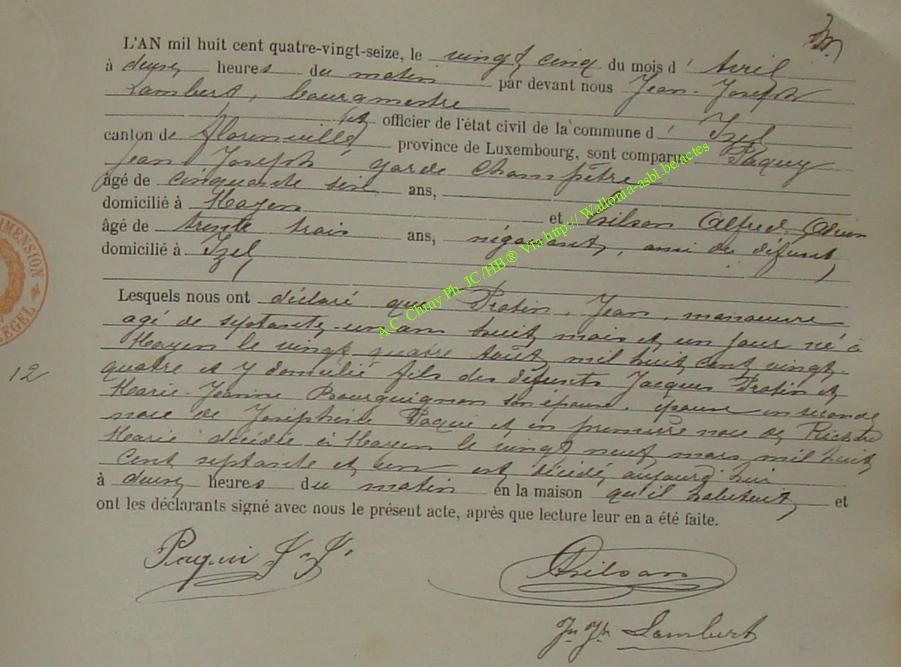 L'AN mil huit cent quatre-vingt-seize, le vingt cinq du mois d' Avril
à deux heures du matin par devant nous Jean-Joseph
Lambert, bourgmestre
et officier de l'état civil de la commune d' Izel
canton de florenville province de Luxembourg, sont comparus Paquy
Jean Joseph garde Champêtre
âgé de cinquante six ans,
domicilié à Moyen et Gilson Alfred
âgé de trente trois ans, négociant, ami du défunt,
domicilié à Izel,
Lesquels nous ont déclaré que Protin, Jean, manoeuvre
agé de septante un ans huit mois et un jour né à
Moyen le vingt quatre août mil huit cent vingt-
quatre et y domicilié fils des défunts Jacques Protin et
Marie-Jeanne Bourguignon son épouse, époux en seconde
noce de Joséphine Paquie et en première noce de
Marie décédée à Moyen le vingt neuf mars mil huit
cent septante et un est décédé aujourd'hui
à deux heures du matin en la maison qu'il habitait, et
ont les déclarants signé avec nous le présent acte, après que lecture leur en a été faite.
12
DIMENSION
ZEGEL
Paqui J-J.
Gilson
Jn Jh Lambert
A.C. Chiny Ph. JC /HB® Via http:// Wallonia-asbl.be.actes